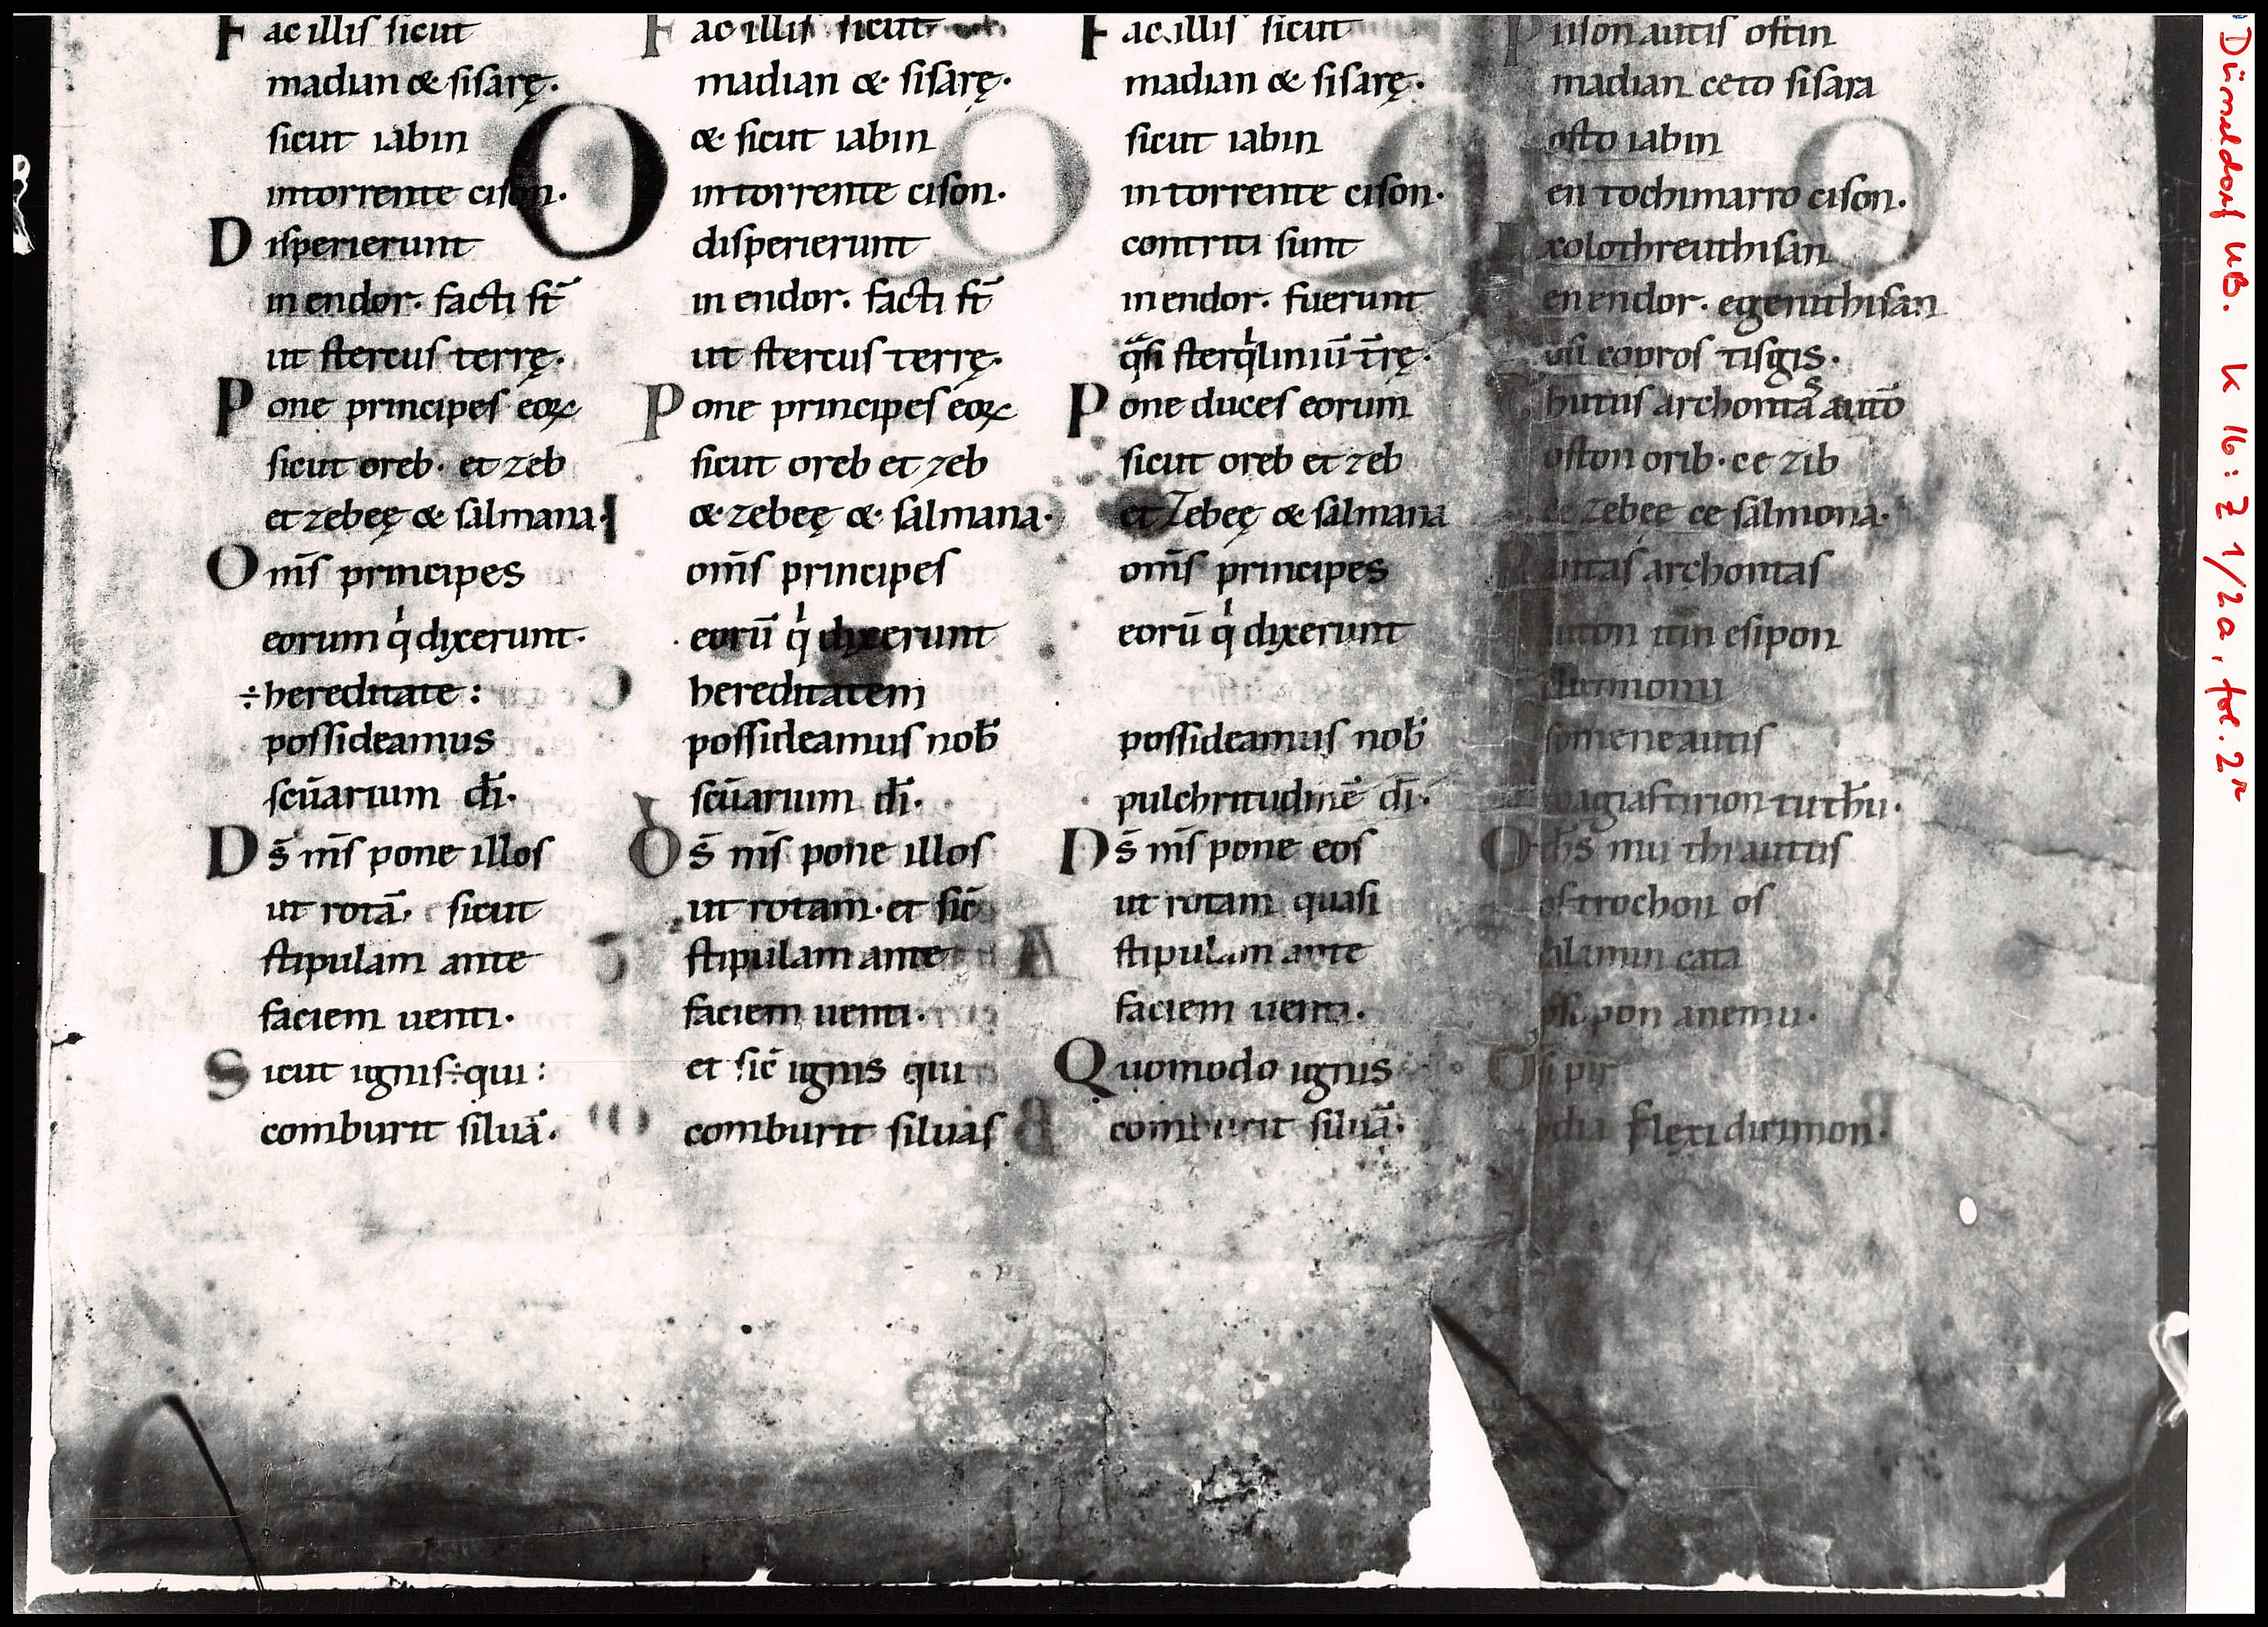 Fac illis sicut
madian & sisarę.
sicut iabin
in torrente cison.
Disperierunt
in endor. facti st̄
ut stercus terrę.
Pone principes eoꝝ
sicut oreb. et zeb
et zebeę & salmana.
Om̄s principes
eorum q̍ dixerunt.
÷hereditate:
possideamus
scūarium dī.
Ds̄ ms̄ pone illos
ut rotā. sicut
stipulam ante
faciem uenti.
Sicut ignis÷qui:
comburit siluā.
Fac illis sicut
madian & sisarę.
& sicut iabin
in torrente cison.
disperierunt
in endor. facti st̄
ut stercus terrę.
Pone principes eoꝝ
sicut oreb et zeb
& zebeę & salmana.
om̄s principes
eorū q̍ dixerunt
hereditatem
possideamus nob̄
scūarium dī.
Ds̄ ms̄ pone illos
ut rotam. et sic̄
stipulam ante
faciem uenti.
et sic̄ ignis qui
comburit siluas
Fac illis sicut
madian & sisarę.
sicut iabin
in torrente cison.
contriti sunt
in endor. fuerunt
q̄si sterq̍liniū tr̄ę.
Pone duces eorum
sicut oreb et zeb
et Zebeę & salmana
om̄s principes
eorū q̍ dixerunt
possideamus nob̄
pulchritudinē dī.
Ds̄ ms̄ pone eos
ut rotam quasi
stipulam ante
faciem uenti.
Quomodo ignis
comburit siluā.
Piison autis ostin
madian ceto sisara
osto iabin
en tochimarro cison.
xolothreuthisan
en endor. egenithisan
osi copros tisgis.
archontas
oston orib. ce zib
ce zebeę ce salmona.
archontas
esipon
autis
O ths̄ mu thi autus
os trochon os
calamin cata
anemu.
Osi pir
flexi dirimon.
Düsseldorf UB. K 16: Z 1/2a, fol. 2r